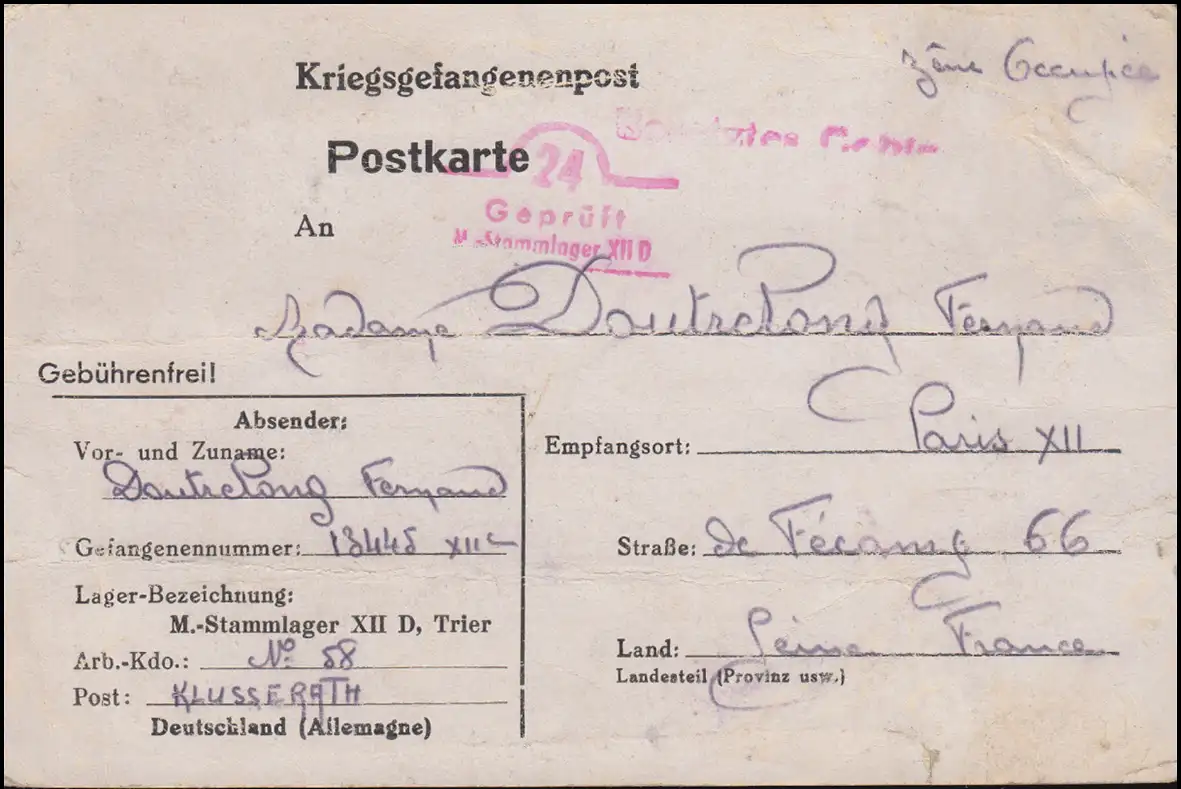 zône Occupée
Kriegsgefangenenpost
Postkarte
24
Geprüft
M.-Stammlager XII D
An
Madame Doutrelong Fernand
Gebührenfrei!
Absender:
Vor- und Zuname:
Doutrelong Fernand
Gefangenennummer: 13445 XII C
Lager-Bezeichnung:
M.-Stammlager XII D, Trier
Arb.-Kdo.: No 58
Post: KLUSSERATH
Deutschland (Allemagne)
Empfangsort: Paris XII
Straße: de Fécamp 66
Land: Seine France
Landesteil (Provinz usw.)